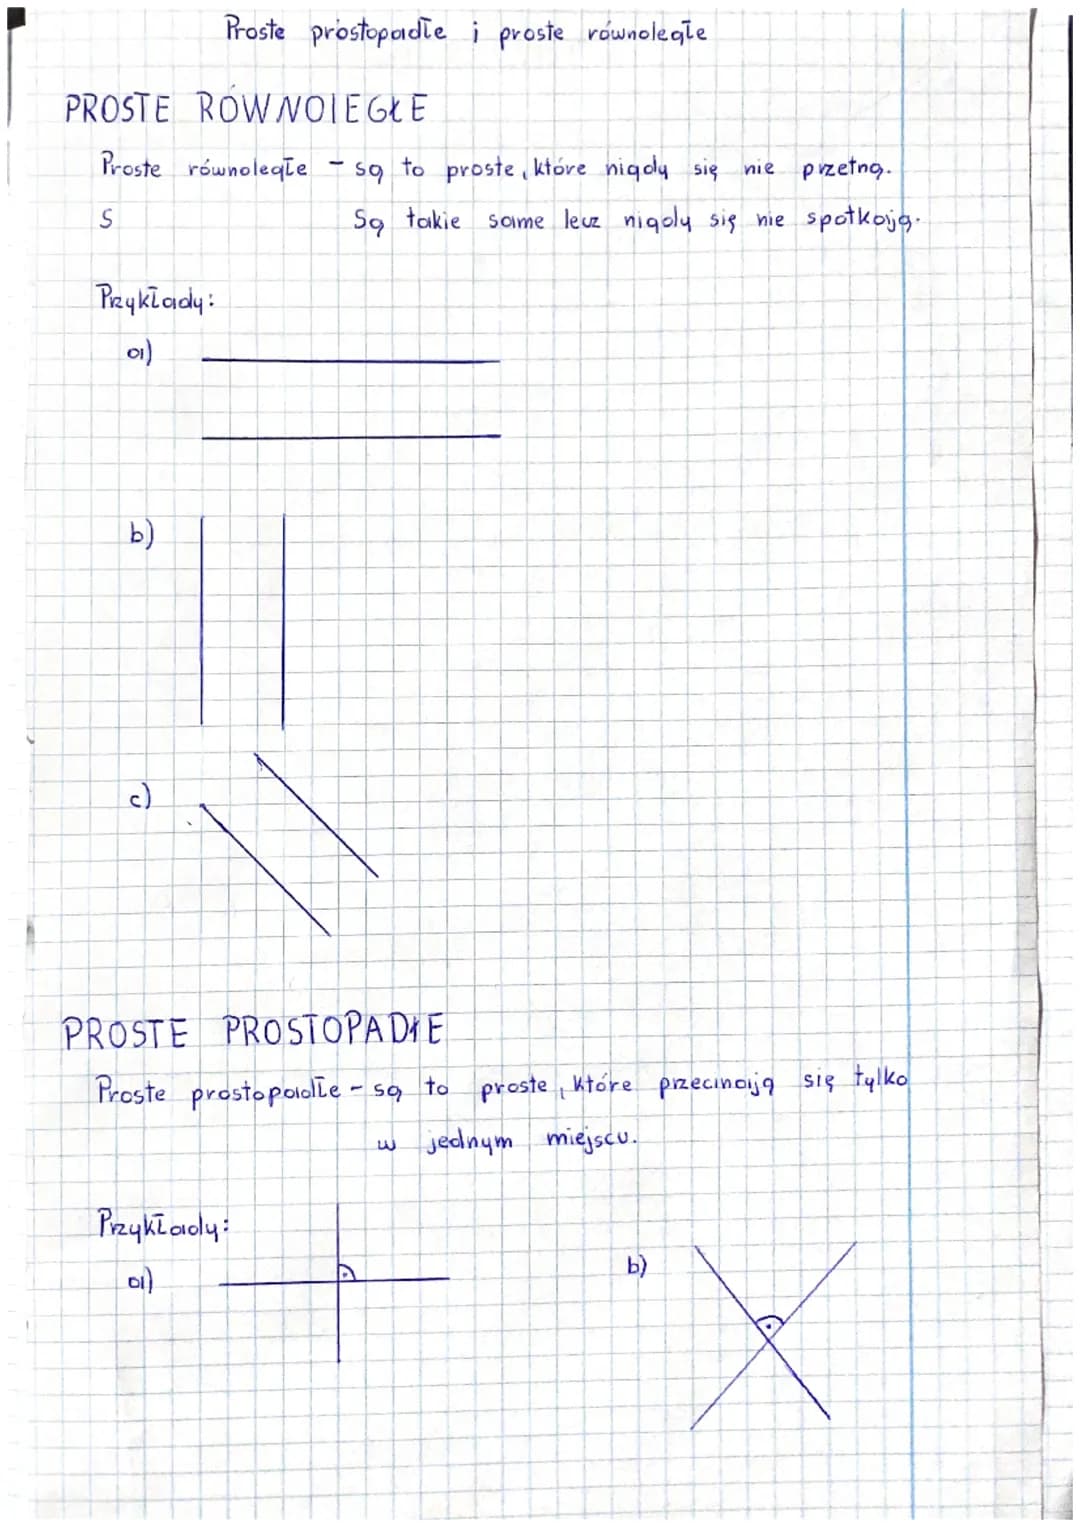 Proste prostopadłe i proste równoległe
PROSTE RÓWNOLEGŁE
Proste równoległe - są to proste, które nigdy się nie przetną.
S Są takie same lecz nigdy się nie spotkają.
Przykłady:
a)
b)
c)
PROSTE PROSTOPADŁE
Proste prostopadłe - są to proste, które przecinają się tylko
w jednym miejscu.
Przykłady:
a) b)